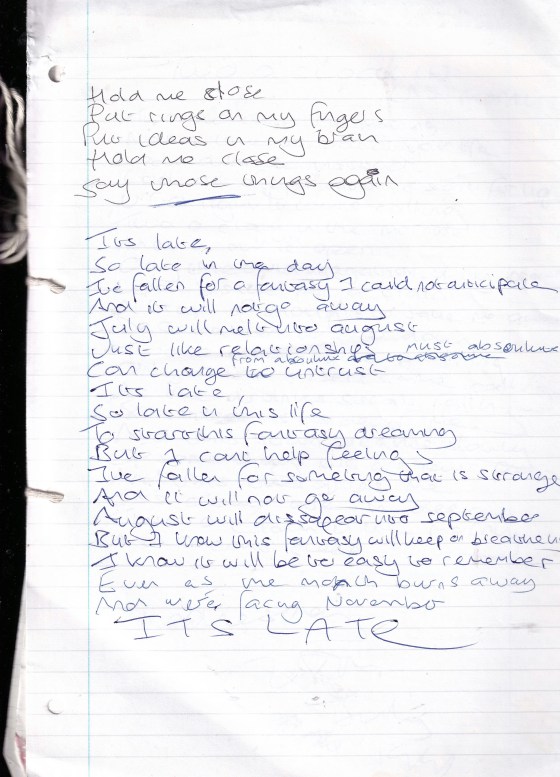 Hold me close
Put rings on my fingers
Put ideas in my brain
Hold me close
Say those things again
Its late,
So late in the day
I've fallen for a fantasy I could not anticipate
And it will not go away
July will melt into august
Just like relationships must absolute
from absolute
Can change to untrust
Its late,
So late in this life
To start this fantasy dreaming
But I cant help feeling
I've fallen for something that is strange
And it will not go away
August will dissapear into september
But I know this fantasy will keep on breathing
I know it will be to easy to remember
Even as the month burns away
And we're facing November
ITS LATE